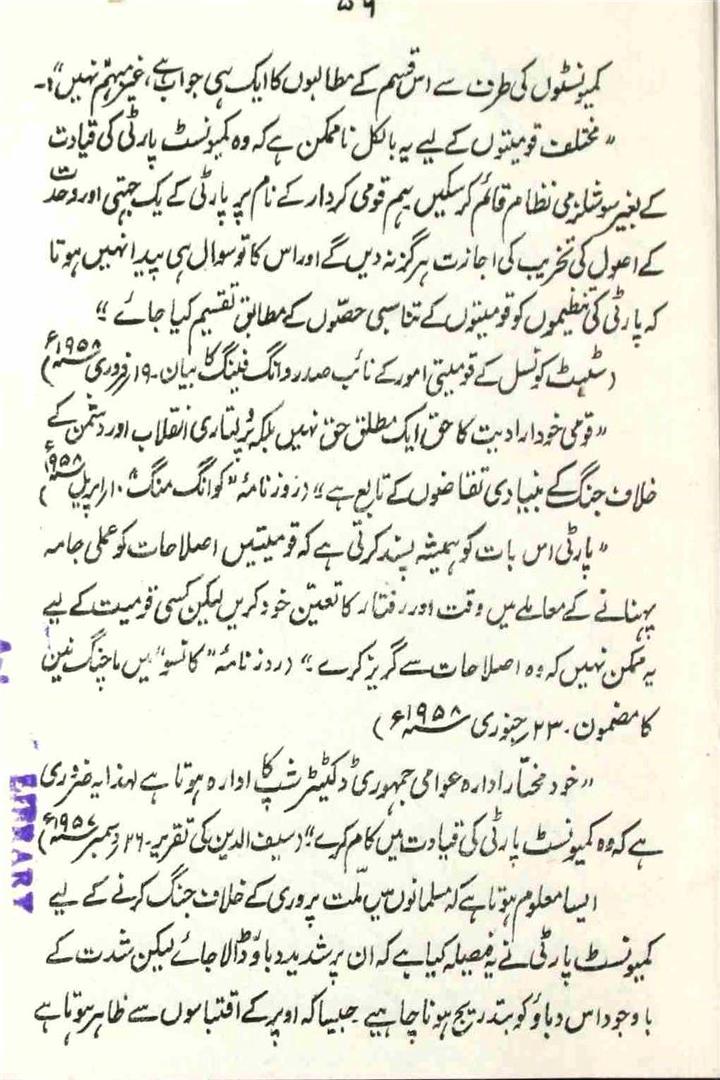 ۵۶
کمیونسٹوں کی طرف سے اس قسم کے مطالبوں کا ایک ہی جواب ہے، غیر مبہم نہیں"۔
"مختلف قومیتوں کے لیے یہ بالکل ناممکن ہے کہ وہ کمیونسٹ پارٹی کی قیادت
کے بغیر سوشلزمی نظام قائم کر سکیں ہم قومی کردار کے نام پر پارٹی کے یک جہتی اور وحدت
کے اصول کی تخریب کی اجازت ہرگز نہ دیں گے اور اس کا تو سوال ہی پیدا نہیں ہوتا
کہ پارٹی کی تنظیموں کو قومیتوں کے تناسبی حصّوں کے مطابق تقسیم کیا جائے"
(سٹیٹ کونسل کے قومیتی امور کے نائب صدر وانگ فینگ کا بیان۔ ۱۹ فروری ۱۹۵۸ء)
"قومی خود ارادیت کا حق ایک مطلق حق نہیں بلکہ پرولتاری انقلاب اور دشمن کے
خلاف جنگ کے بنیادی تقاضوں کے تابع ہے" (روزنامہ "کوانگ منگ" ۱۰ اپریل ۱۹۵۸ء)
"پارٹی اس بات کو ہمیشہ پسند کرتی ہے کہ قومیتیں اصلاحات کو عملی جامہ
پہنانے کے معاملے میں وقت اور رفتار کا تعیّن خود کریں لیکن کسی قومیت کے لیے
یہ ممکن نہیں کہ وہ اصلاحات سے گریز کرے۔" (روزنامہ "کانسو" میں ماچنگ نین
کا مضمون۔ ۲۳ جنوری ۱۹۵۸ء)
"خود مختار ادارہ عوامی جمہوری ڈکٹیٹر شپ کا ادارہ ہوتا ہے لہٰذا یہ ضروری
ہے کہ وہ کمیونسٹ پارٹی کی قیادت میں کام کرے" (سیف الدین کی تقریر۔ ۲۶ دسمبر ۱۹۵۷ء)
ایسا معلوم ہوتا ہے کہ مسلمانوں میں ملّت پروری کے خلاف جنگ کرنے کے لیے
کمیونسٹ پارٹی نے یہ فیصلہ کیا ہے کہ ان پر شدید دباؤ ڈالا جائے لیکن شدت کے
باوجود اس دباؤ کو بتدریج ہونا چاہیے جیسا کہ اوپر کے اقتباسوں سے ظاہر ہوتا ہے
LIBRARY